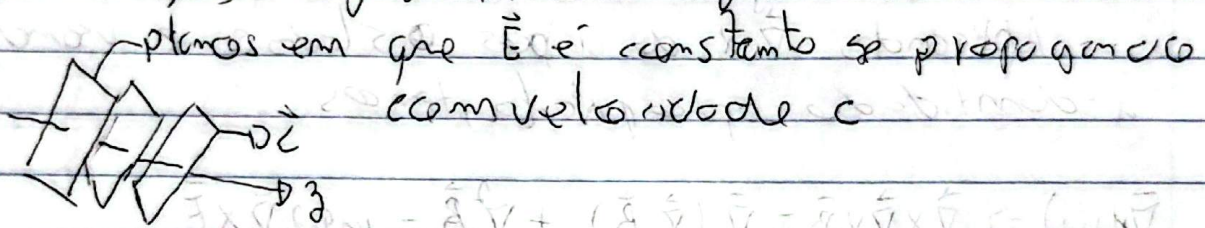 planos em que E⃗ é constante se propagando
com velocidade c
c⃗
z